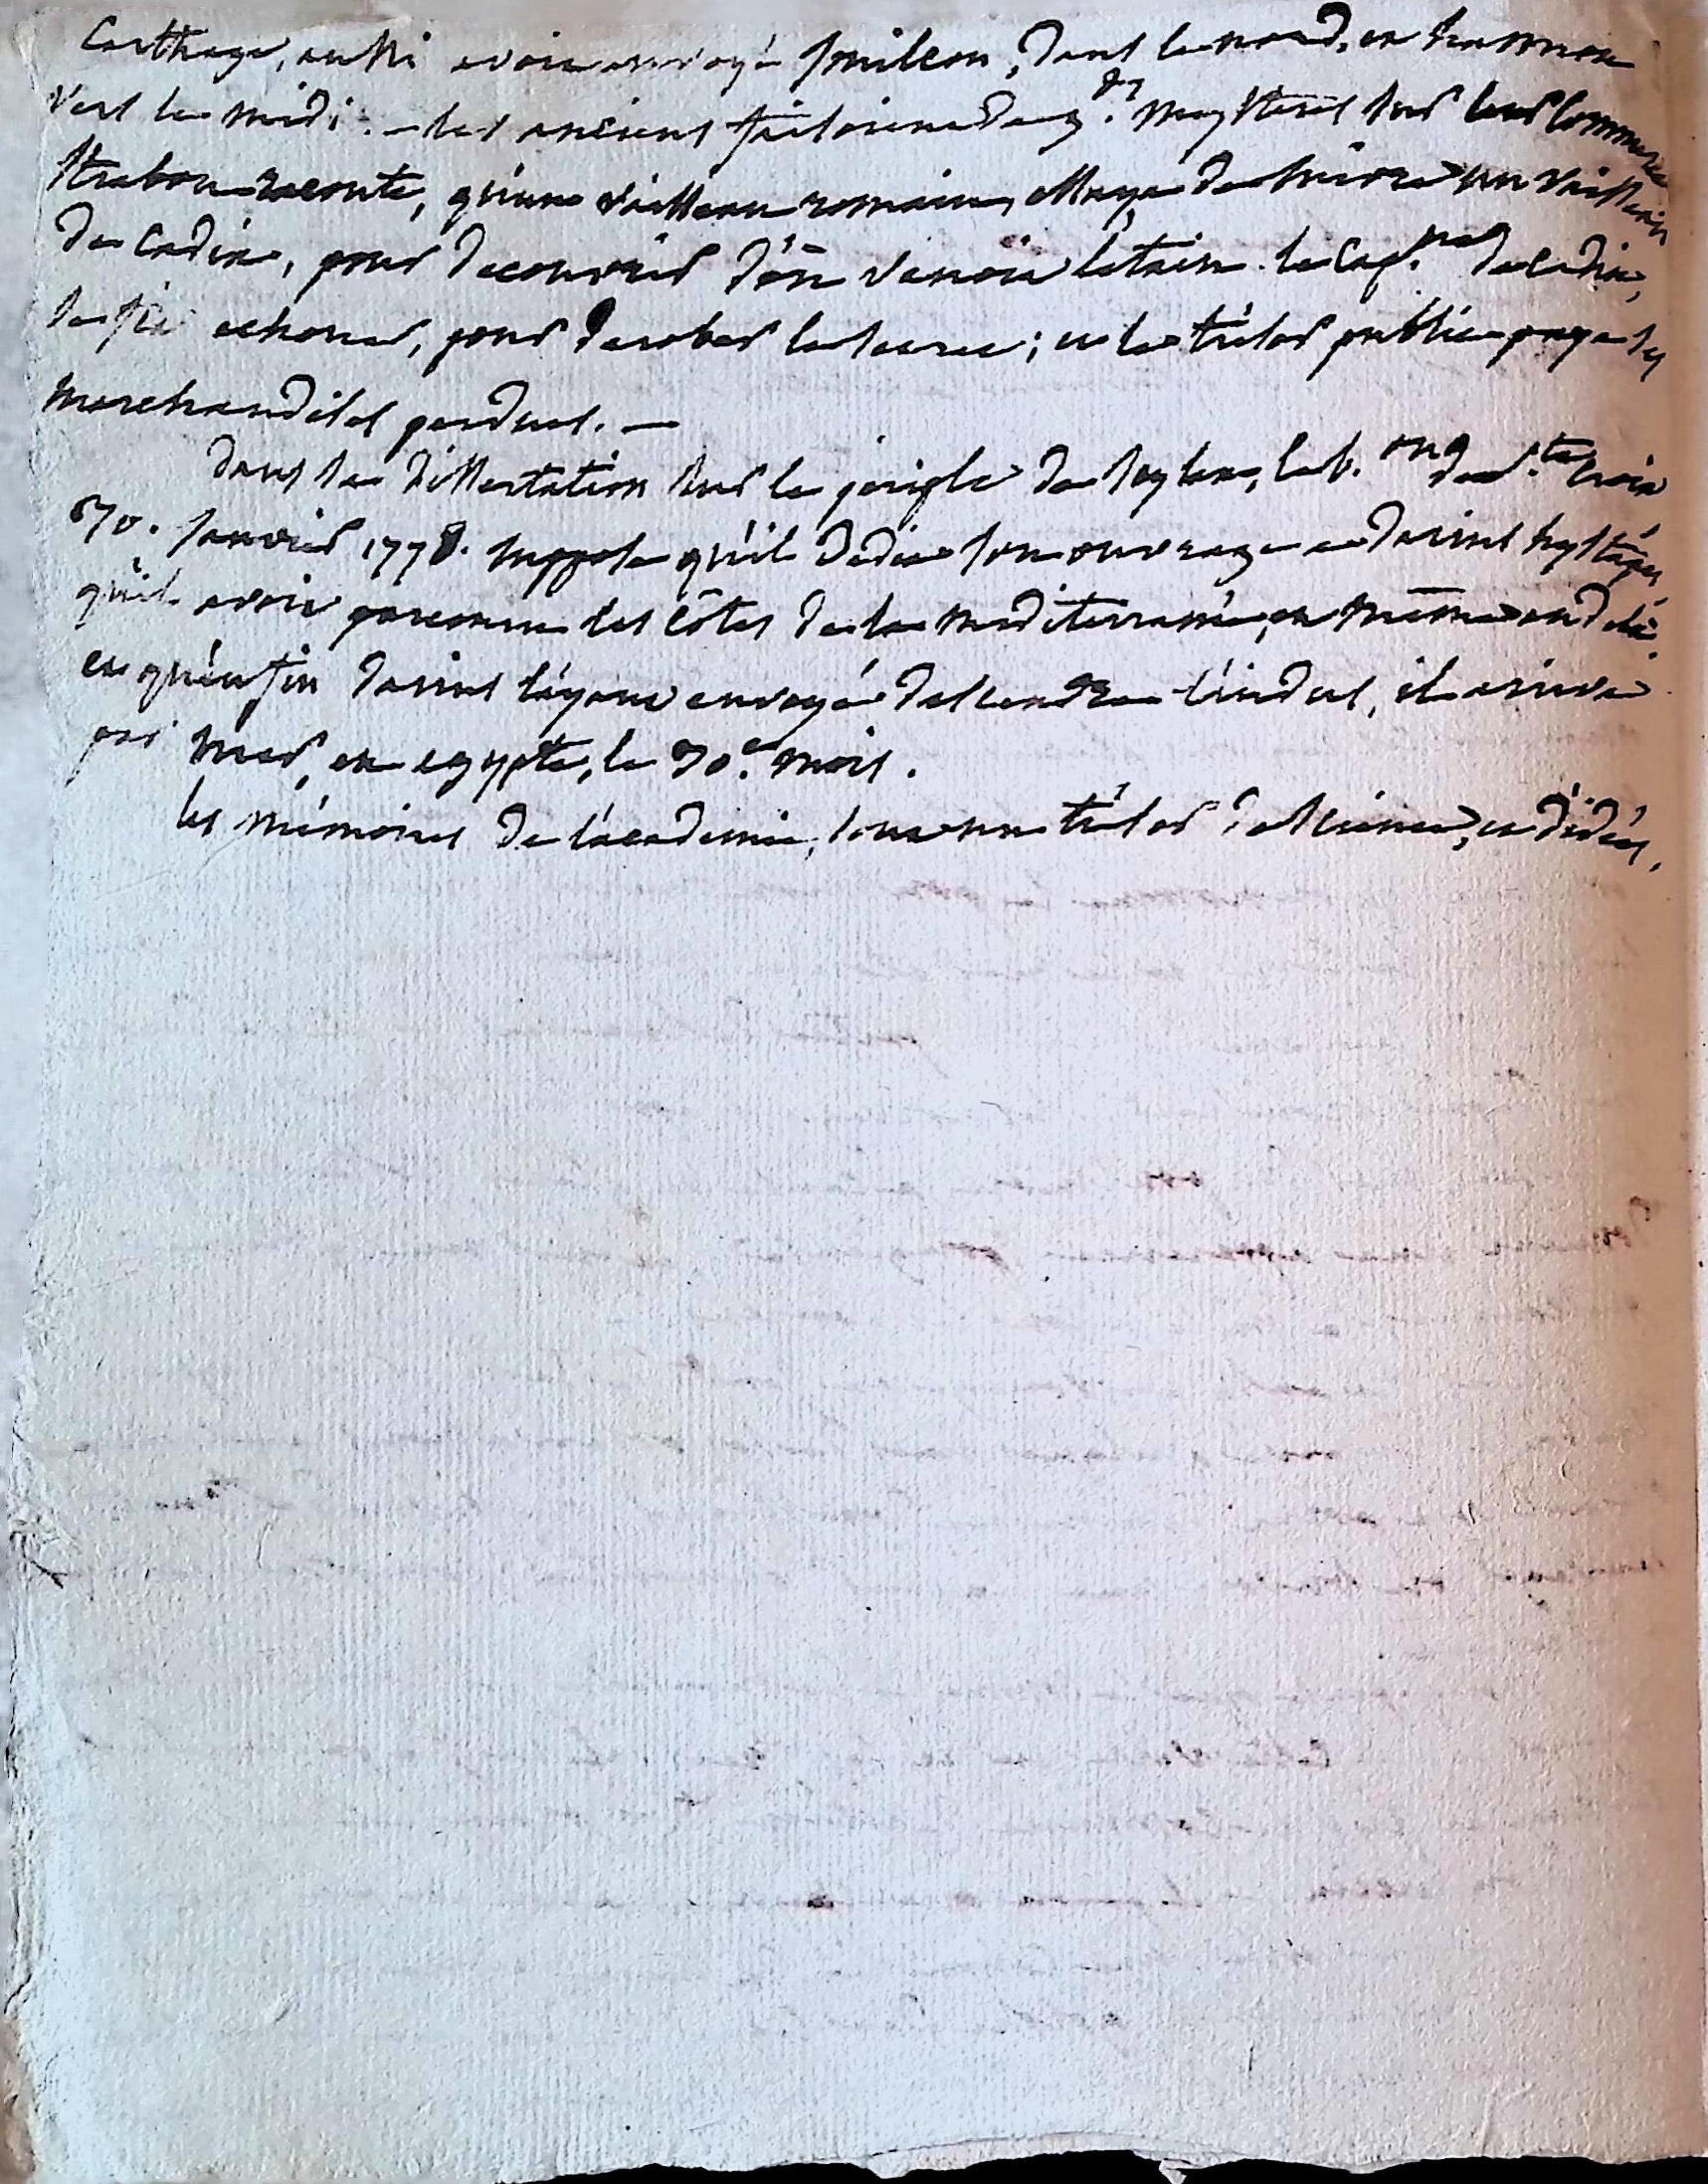 Carthage, aussi avoit envoyé jmilcon, dans le nord, et hannon
vers le midi. — les anciens faisoient de g.ds mysteres sur leur commerce
strabon raconte, qu'une vaisseau romain, essaya de suivre un vaisseau
de Cadix, pour decouvrir d'ou venoit l'étain. le cap.ne de Cadix,
se fit echouer, pour derober la source; et le trésor public paya ses
marchandises perdues. —
dans sa dissertation sur le périple de scylax, le b. de s.te Croix
janvier 1778. suppose qu'il dédia son ouvrage a darius hystaspes,
qu'il avoit parcouru les côtes de la mediterranée, et même au dela.
et qu'enfin darius l'ayant envoyé descendre l'indus, il arriva
par mer, en egypte, le 30.e mois.
les mémoires de l'academie, sont un trésor de science, et d'idées.